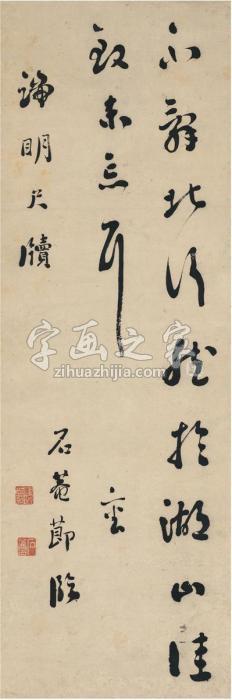 不辞北行然于湖山佳
致未忘耳
識明尺牘
石菴節臨
字画之家
zihuazhijia.com